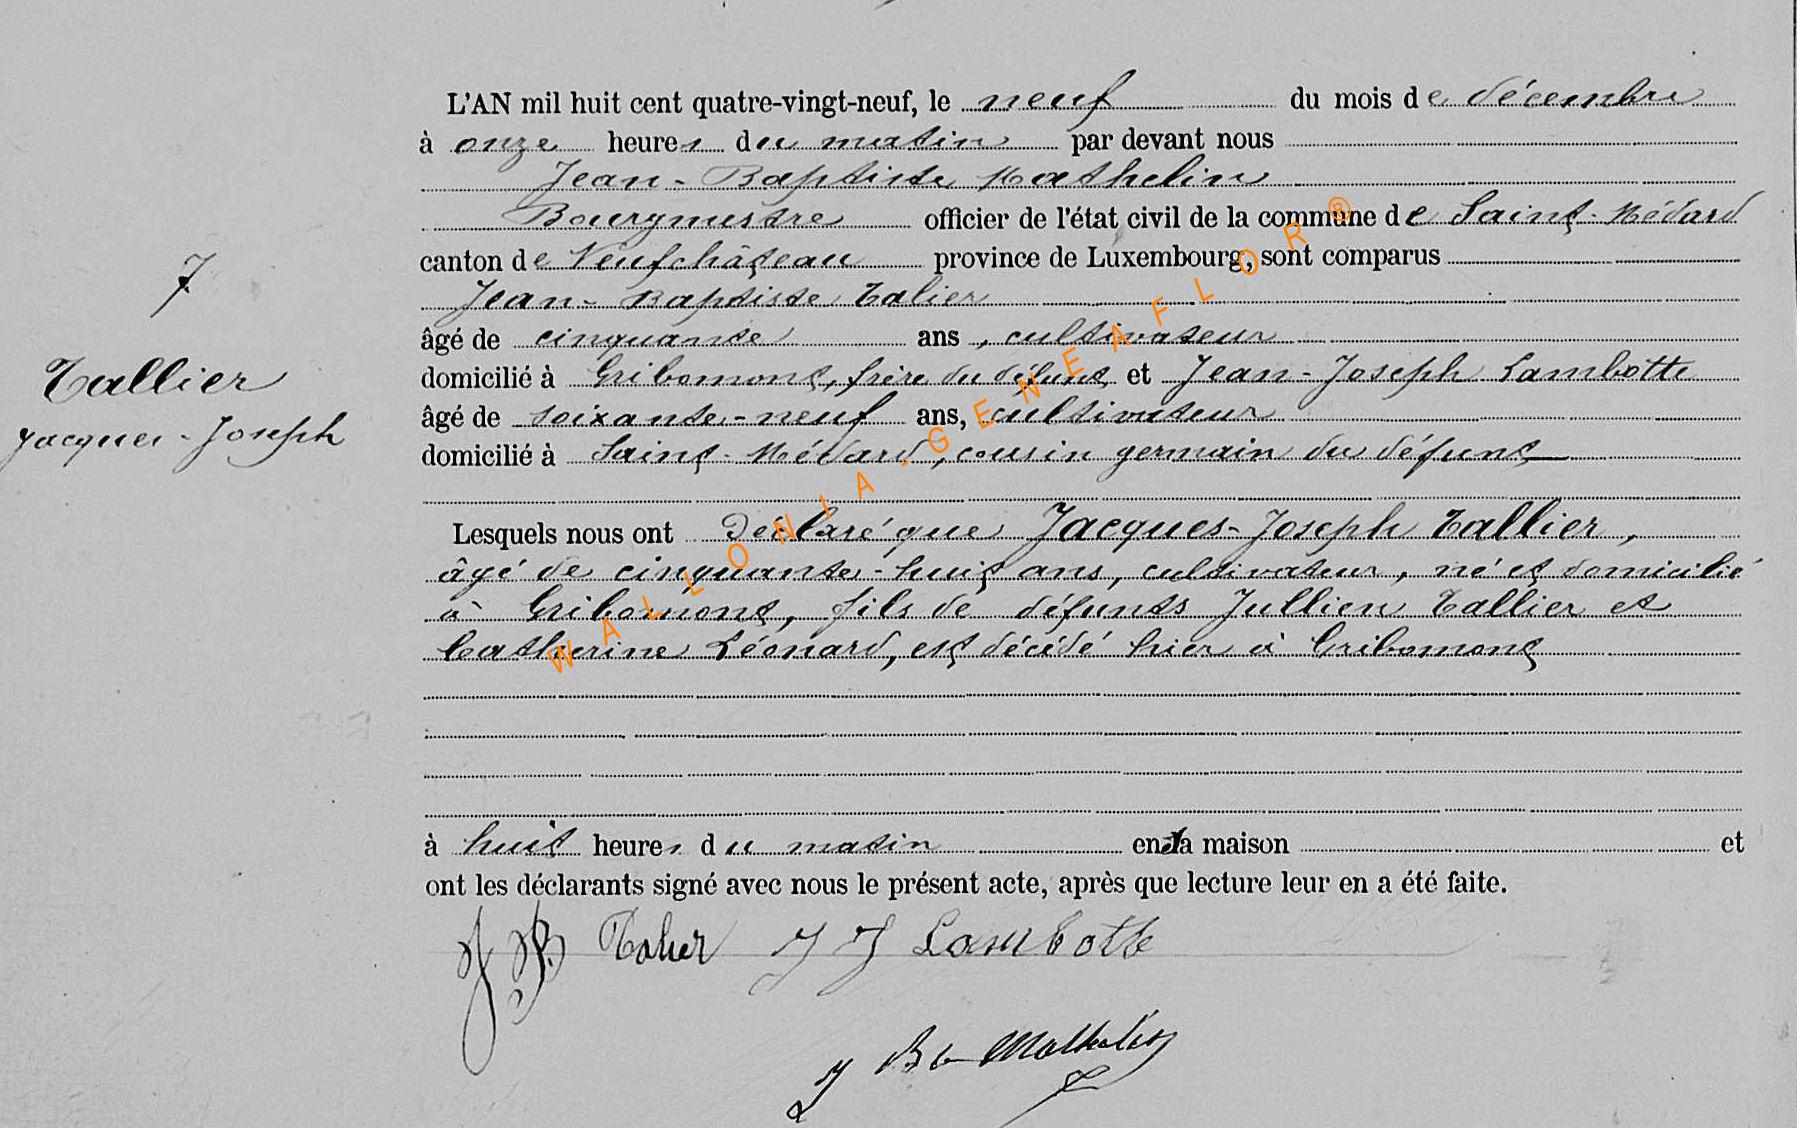 L'AN mil huit cent quatre-vingt-neuf, le neuf du mois de décembre
à onze heures du matin par devant nous
Jean-Baptiste Mathelin
Bourgmestre officier de l'état civil de la commune de Saint-Médard
canton de Neufchâteau province de Luxembourg, sont comparus
Jean-Baptiste Talier
âgé de cinquante ans, cultivateur
domicilié à Gribomont, frère du défunt et Jean-Joseph Lambotte
âgé de soixante-neuf ans, cultivateur
domicilié à Saint-Médard, cousin germain du défunt
7
Tallier
Jacques-Joseph
Lesquels nous ont déclaré que Jacques-Joseph Tallier,
âgé de cinquante-huit ans, cultivateur, né et domicilié
à Gribomont, fils de défunts Jullien Tallier et
Catherine Léonard, est décédé hier à Gribomont
à huit heures du matin en sa maison et
ont les déclarants signé avec nous le présent acte, après que lecture leur en a été faite.
J B Talier J J Lambotte
J Bte Mathelin
WALLONIA-GENEAFLOR®